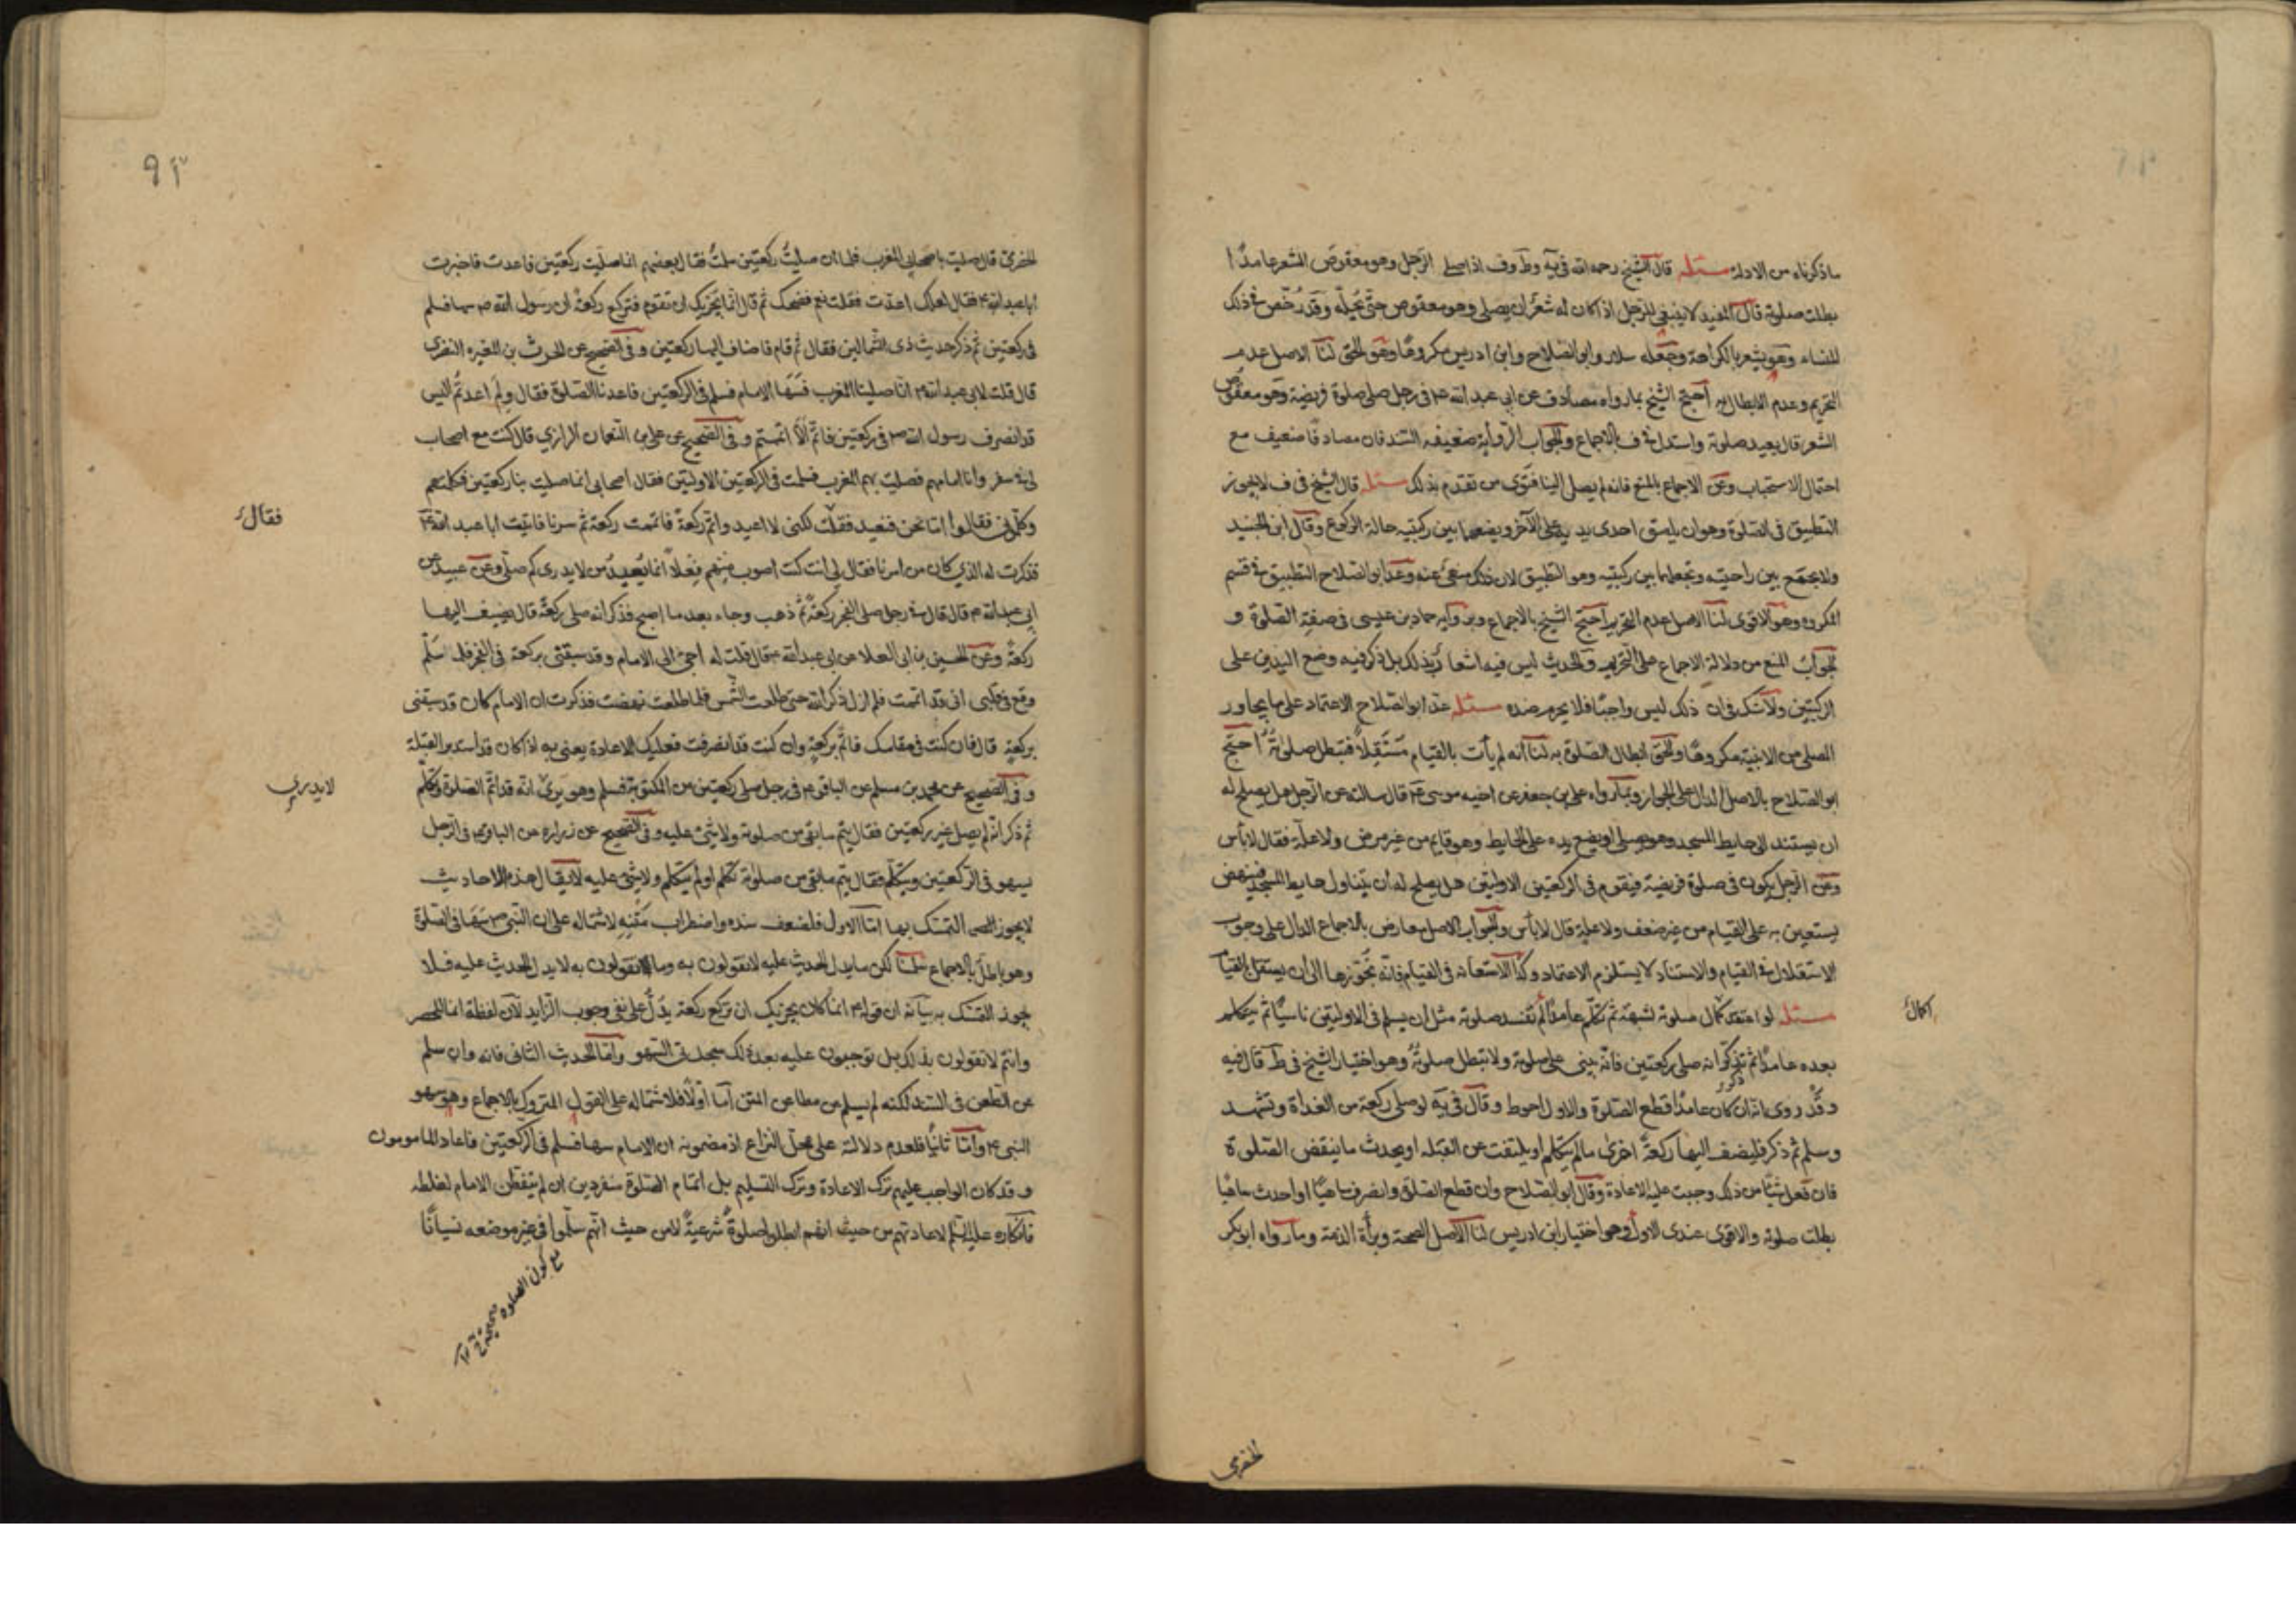 ما ذكرناه من الادلة مسئله قال الشيخ رحمه الله في يه وط وف اذا صلى الرجل وهو معقوص الشعر عامدا
بطلت صلوته قال المفيد لا ينبغي للرجل اذا كان له شعر ان يصلي وهو معقوص حتى يحله وقد رخص في ذلك
للنساء وهو يشعر بالكراهة وجعله سلار وابو الصلاح وابن ادريس مكروها وهو الحق لنا الاصل عدم
التحريم وعدم الابطال به احتج الشيخ بما رواه مصادف عن ابي عبد الله ع في رجل صلى صلوة فريضة وهو معقوص
الشعر قال يعيد صلوته واستدل في ف بالاجماع والجواب الرواية ضعيفه السند فان مصادفا ضعيف مع
احتمال الاستحباب وعن الاجماع بالمنع فانه لم يصل الينا فتوى من تقدم بذلك مسئله قال الشيخ في ف لا يجوز
التطبيق في الصلوة وهو ان يلصق احدى يديه على الآخر ويضعهما بين ركبتيه حالة الركوع وقال ابن الجنيد
ولا يجمع بين راحتيه ويجعلهما بين ركبتيه وهو التطبيق لان ذلك منهى عنه وعد ابو الصلاح التطبيق في قسم
المكروه وهو الاقوى لنا الاصل عدم التحريم احتج الشيخ بالاجماع وبرواية حماد بن عيسى في صفة الصلوة و
الجواب المنع من دلالة الاجماع على التحريم والحديث ليس فيه اشعار بذلك بل ذكر فيه وضع اليدين على
الركبتين ولا شك في ان ذلك ليس واجبا فلا يحرم ضده مسئله عد ابو الصلاح الاعتماد على ما يجاور
المصلي من الابنية مكروها والحق ابطال الصلوة به لنا انه لم يأت بالقيام مستقلا فتبطل صلوته احتج
ابو الصلاح بالاصل الدال على الجواز وبما رواه علي بن جعفر عن اخيه موسى ع قال سالته عن الرجل هل يصلح له
ان يستند الى حايط المسجد وهو يصلي او يضع يده على الحايط وهو قايم من غير مرض ولا علة فقال لا بأس
وعن الرجل يكون في صلوة فريضة فيقوم في الركعتين الاوليين هل يصلح له ان يتناول حايط المسجد فينهض
يستعين به على القيام من غير ضعف ولا علة قال لا بأس والجواب الاصل معارض بالاجماع الدال على وجوب
الاستقلال في القيام والاستناد لا يستلزم الاعتماد وكذا الاستعانه في القيام فانه نجوزها الى ان يستقل القيام
مسئله لو اعتقد كمال صلوته لشبهة ثم تكلم عامدا لم تفسد صلوته مثل ان يسلم في الاوليين ناسيا ثم يتكلم
اكمال
بعده عامدا ثم تذكر انه صلى ركعتين فانه يبني على صلوته ولا تبطل صلوته وهو اختيار الشيخ في ط قال فيه
وقد روى انه ان كان عامدا قطع الصلوة والاول احوط وقال في يه لو صلى ركعة من الغداة وتشهد
وسلم ثم ذكر فليضف اليها ركعة اخرى ما لم يتكلم او يلتفت عن القبله او يحدث ما ينقض الصلوة
فان فعل شيئا من ذلك وجبت عليه الاعادة وقال ابو الصلاح وان قطع الصلوة وانصرف ساهيا او احدث ساهيا
بطلت صلوته والاقوى عندى الاول وهو اختيار ابن ادريس لنا الاصل الصحة وبرأة الذمة وما رواه ابو بكر
الحضرمي
الحضرمي قال صليت باصحابي المغرب فلما ان صليت ركعتين سلمت فقال بعضهم انما صليت ركعتين فاعدت فاخبرت
ابا عبد الله ع فقال لعلك اعدت فقلت نعم فضحك ثم قال انما يجزيك ان تقوم فتركع ركعة ان رسول الله ص سها فسلم
في ركعتين ثم ذكر حديث ذى الشمالين فقال ثم قام فاضاف اليها ركعتين وفي الصحيح عن الحرث بن المغيره النضرى
قال قلت لابي عبد الله ع انا صلينا المغرب فسها الامام فسلم في الركعتين فاعدنا الصلوة فقال ولم اعدتم اليس
قد انصرف رسول الله ص في ركعتين فاتم الا اتممتم وفي الصحيح عن علي بن النعمان الرازي قال كنت مع اصحاب
لي في سفر وانا امامهم فصليت بهم المغرب فسلمت في الركعتين الاوليين فقال اصحابي انما صليت بنا ركعتين فكلمتهم
وكلموني فقالوا اما نحن فنعيد فقلت لكني لا اعيد واتم ركعة فاتممت ركعة ثم سرنا فاتيت ابا عبد الله ع
فقال
فذكرت له الذي كان من امرنا فقال لي انت كنت اصوب منهم فعلا انما يعيد من لا يدرى كم صلى وعن عبيد عن
ابي عبد الله ع قال قال في رجل صلى الفجر ركعة ثم ذهب وجاء بعد ما اصبح فذكر انه صلى ركعة قال يضيف اليها
ركعة وعن الحسين بن ابي العلا عن ابي عبد الله ع قال قلت له اجئ الى الامام وقد سبقني بركعة في الفجر فلما سلم
وقع في قلبي اني قد اتممت فلم ازل اذكر الله حتى طلعت الشمس فلما طلعت نهضت فذكرت ان الامام كان قد سبقني
بركعة قال فان كنت في مقامك فاتم بركعة وان كنت قد انصرفت فعليك الاعادة يعني به اذا كان قد استدبر القبلة
وفي الصحيح عن محمد بن مسلم عن الباقر ع في رجل صلى ركعتين من المكتوبة فسلم وهو يرى انه قد اتم الصلوة وتكلم
لا يدري
ثم ذكر انه لم يصل غير ركعتين فقال يتم ما بقي من صلوته ولا شئ عليه وفي الصحيح عن زراره عن الباقر ع في الرجل
يسهو في الركعتين ويتكلم فقال يتم ما بقي من صلوته تكلم او لم يتكلم ولا شئ عليه لا يقال هذه الاحاديث
لا يجوز التمسك بها اما الاول فلضعف سنده واضطراب متنه لاشتماله على ان النبي ص سها في الصلوة
وهو باطل بالاجماع سلمنا لكن ما يدل الحديث عليه لا تقولون به وما تقولون به لا يدل الحديث عليه فلا
يجوز التمسك به بيانه ان قوله ع انما كان يجزيك ان تركع ركعة يدل على نفي وجوب الزايد لان لفظة انما للحصر
وانتم لا تقولون بذلك بل توجبون عليه بعد ذلك سجدتى السهو واما الحديث الثاني فانه وان سلم
عن الطعن في السند لكنه لم يسلم عن مطاعن المتن اما اولا فلاشتماله على القول المتروك بالاجماع وهو سهو
النبي ع واما ثانيا فلعدم دلالته على محل النزاع اذ مضمونه ان الامام سها فسلم في الركعتين فاعاد المامومون
وقد كان الواجب عليهم ترك الاعادة وترك التسليم بل اتمام الصلوة منفردين ان لم يتفطن الامام لغلطه
فانكاره عليه السلم لاعادتهم من حيث انهم ابطلوا صلوة شرعية لا من حيث انهم سلموا في غير موضعه نسيانا
مع كون الصلوة صحيحة